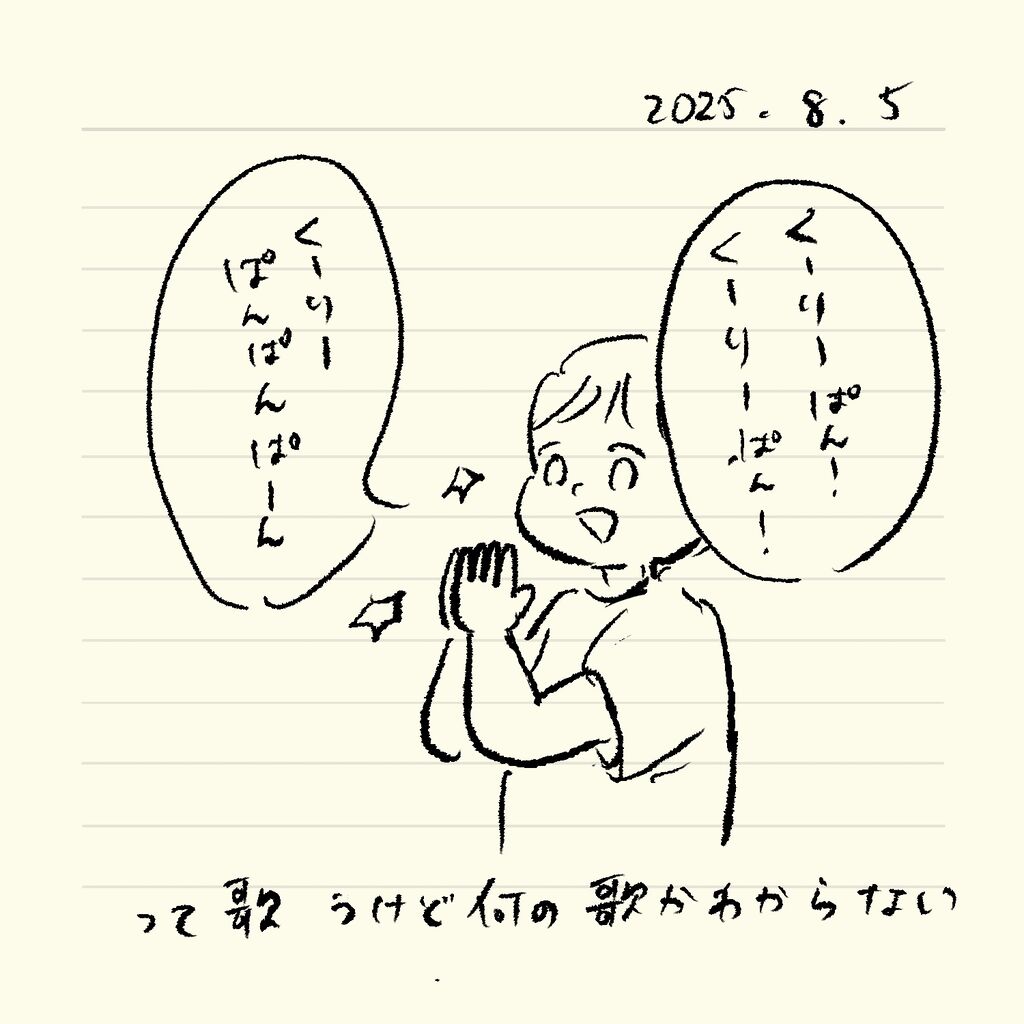 2025. 8. 5
くーりーぱん!
くーりーぱんー!
くーりー
ぱんぱんぱーん
って歌うけど何の歌かわからない